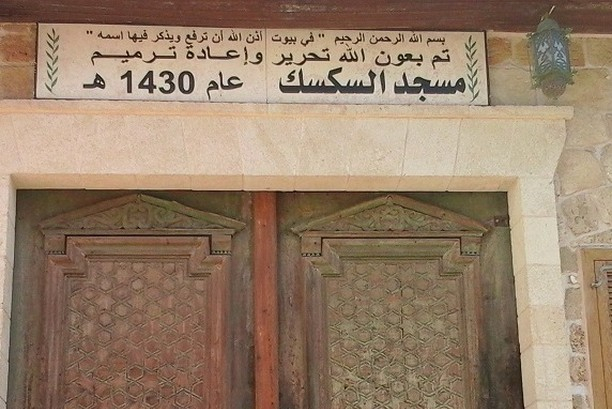 بسم الله الرحمن الرحيم " في بيوت أذن الله أن ترفع ويذكر فيها اسمه "
تم بعون الله تحرير وإعادة ترميم
مسجد السكسك عام 1430 هـ